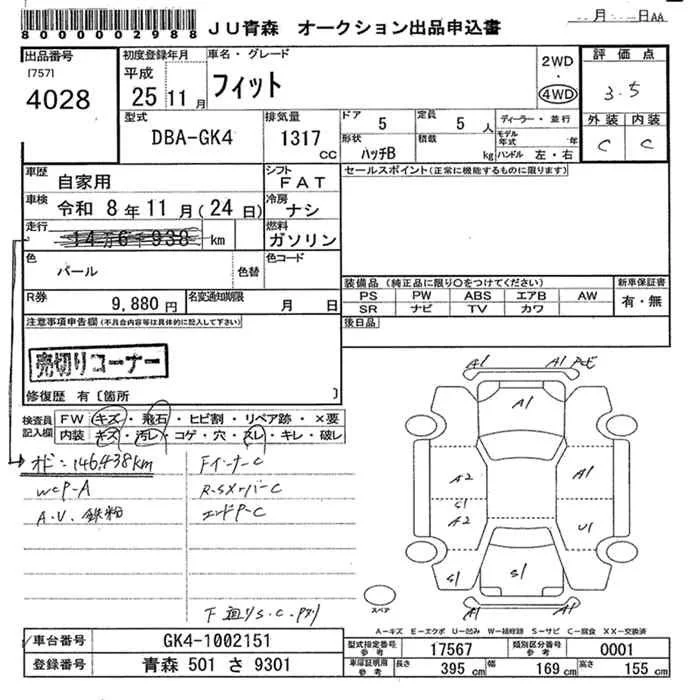 8000000002988 JU青森 オークション出品申込書 月 日AA
出品番号 初度登録年月 車名・グレード 2WD 評価点
(757) 平成 フィット ・ 3.5
4028 25 11月 4WD
外装 内装
C C
型式 排気量 ドア 5 定員 5人 ディーラー・並行
DBA-GK4 1317cc 形状 ハッチB 積載 kg モデル年式 年
ハンドル 左・右
車歴 自家用 シフト FAT セールスポイント(正常に機能するものに限ります)
車検 令和 8年11月(24日) 冷房 ナシ
走行 14万6千938 km 燃料 ガソリン
色 パール 色替 色コード
装備品(純正品に限り○をつけてください) 新車保証書
PS PW ABS エアB AW 有・無
SR ナビ TV カワ
R券 9,880円 名変通知期限 月 日
後日品
注意事項申告欄(不具合内容等は具体的に記入して下さい)
売切りコーナー
修復歴 有〔箇所 〕
検査員記入欄 FW キズ・飛石・ヒビ割・リペア跡・×要
内装 キズ・汚レ・コゲ・穴・スレ・キレ・破レ
オド:146,438km Fインナー C
WCP-A
A.U.鉄粉 エンドP-C
A1 A1
A1
A2 A1
S1
A2 U1
S1 S1 S1
A1 A1
スペア
A-キズ E-エクボ U-凹み W-補修跡 S-サビ C-腐食 XX-交換済
車台番号 GK4-1002151 型式指定番号 参考 17567 類別区分番号 参考 0001
登録番号 青森 501 さ 9301 車庫証明用 参考 長さ 395cm 幅 169cm 高さ 155cm